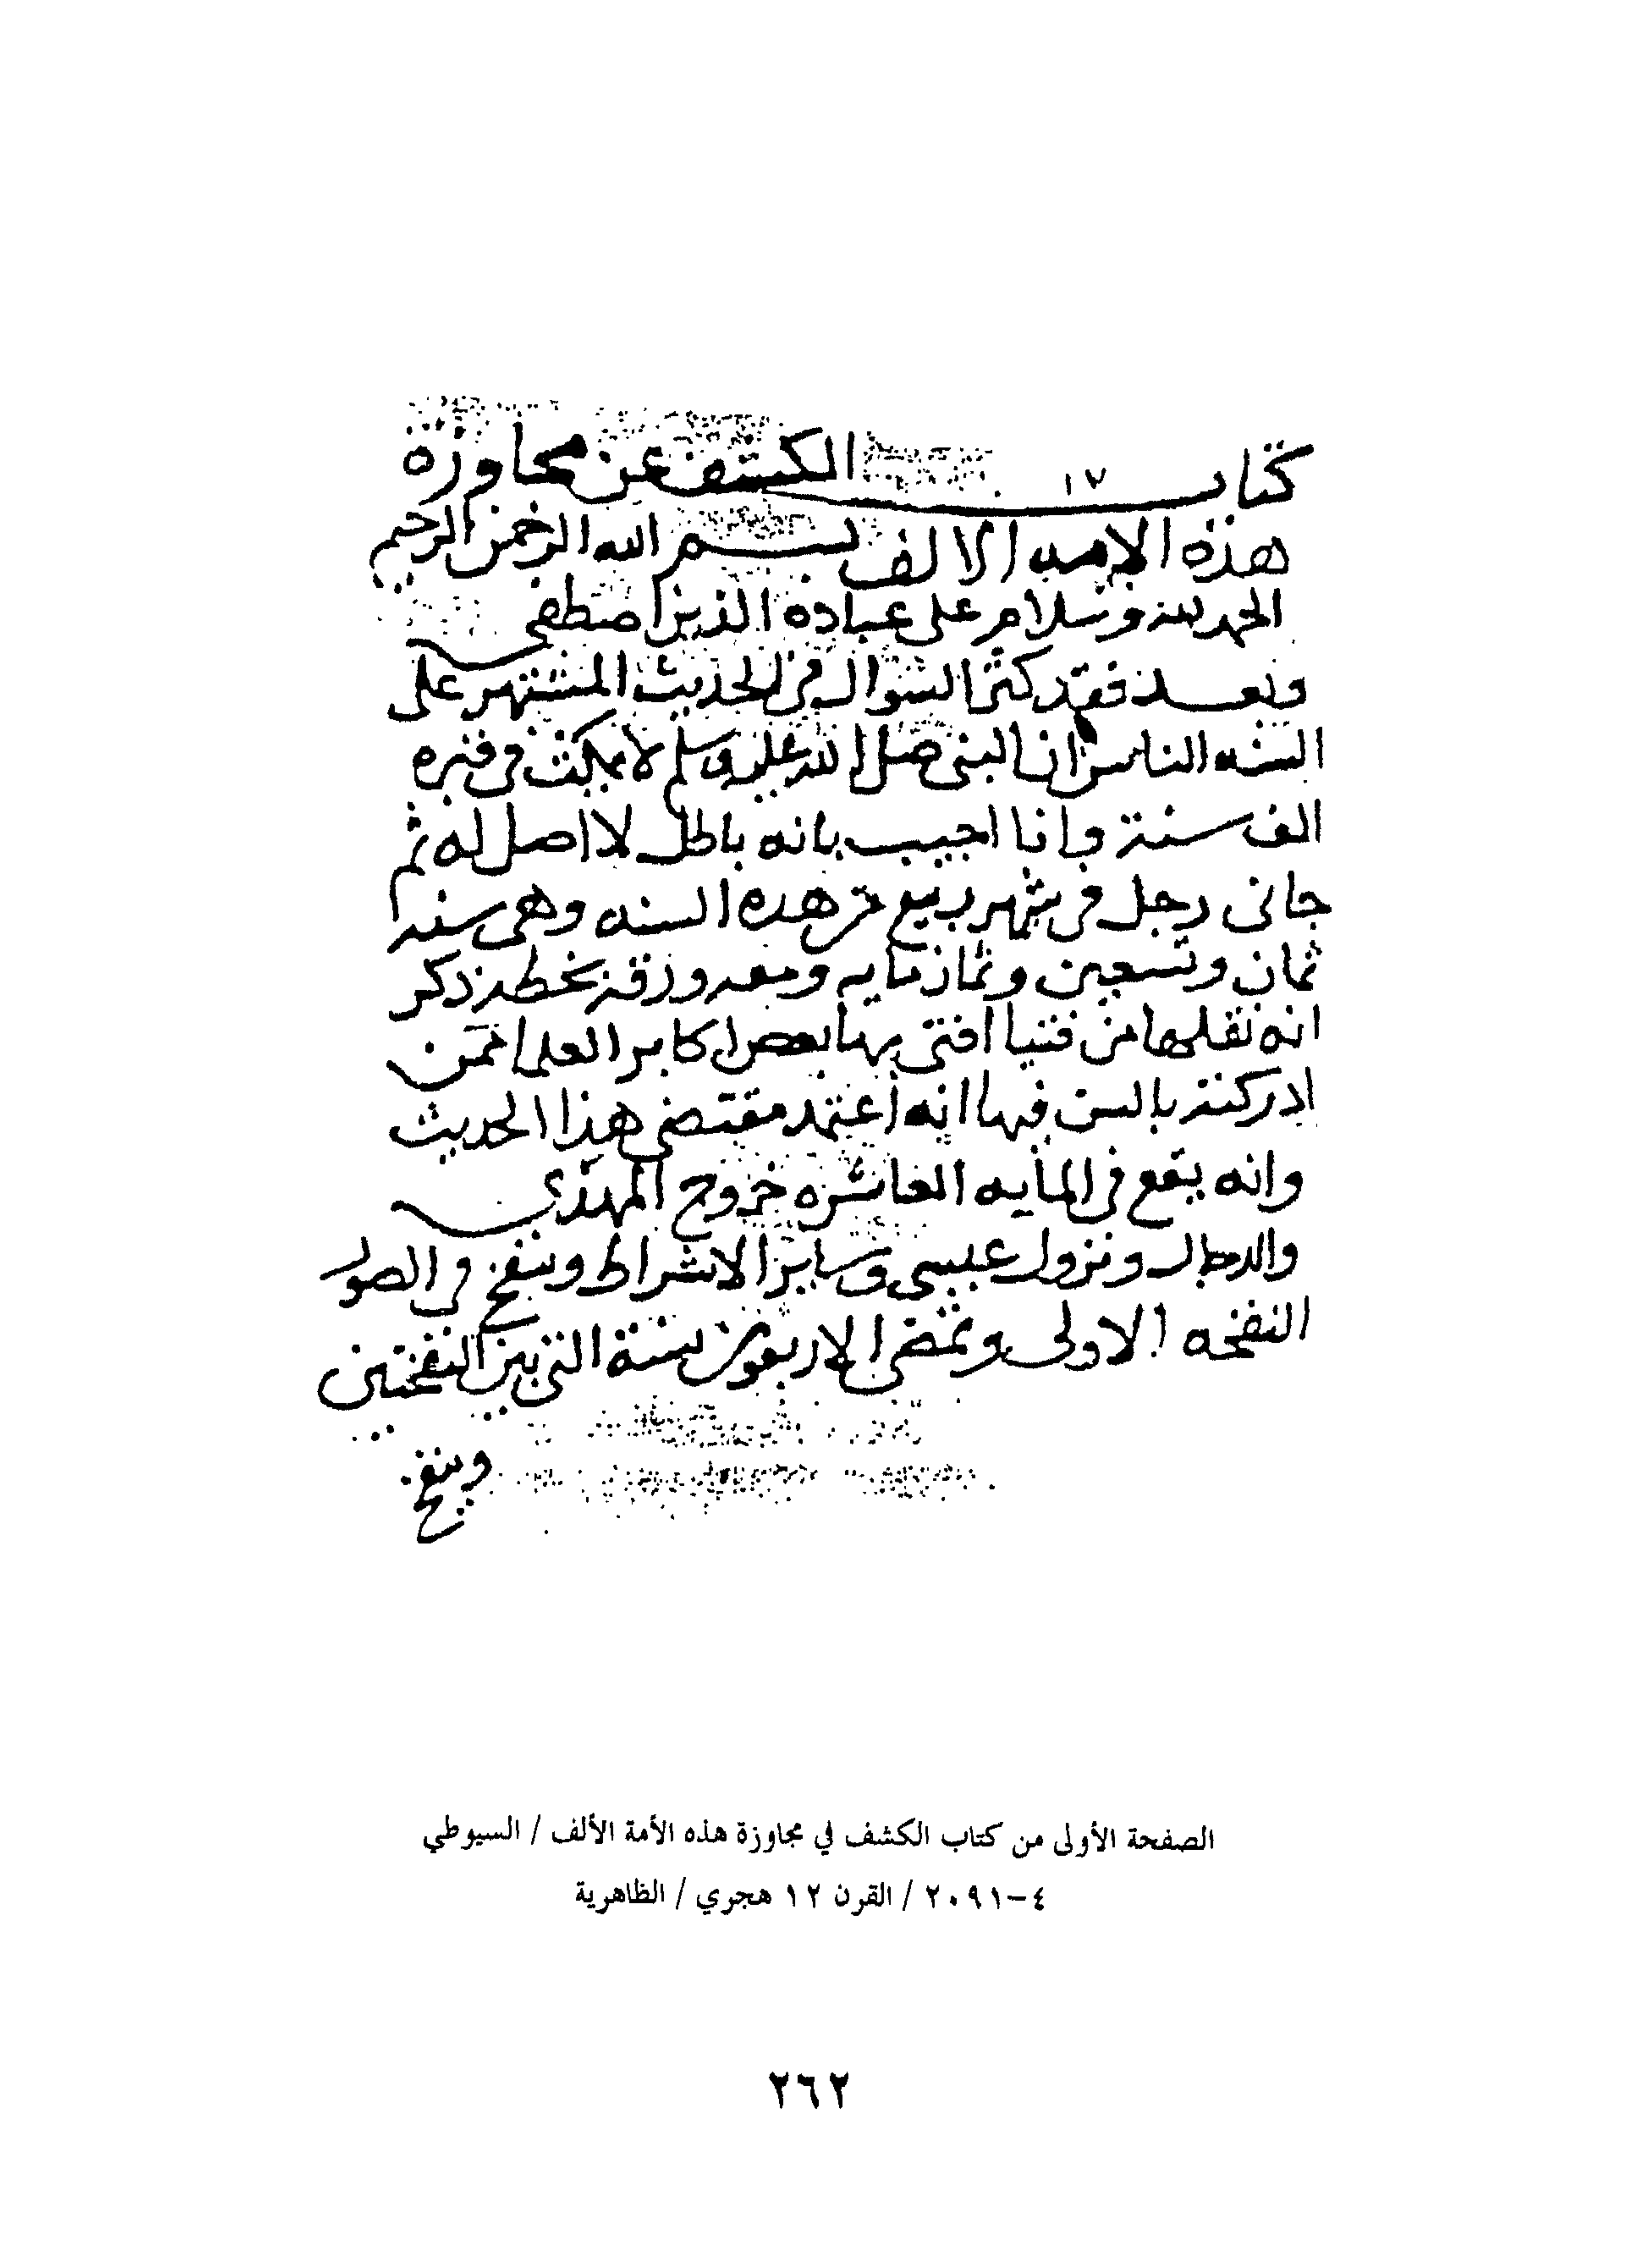 كتاب ١٧ الكشف عن مجاوزة
هذه الامه الالف بسم الله الرحمن الرحيم
الحمد لله وسلام على عباده الذين اصطفى
وبعد فقد كثر السوال في الحديث المشتهر على
السنه الناس ان النبي صلى الله عليه وسلم لا يمكث في قبره
الف سنة وانا اجيب بانه باطل لا اصل له ثم
جانى رجل في شهر ربيع من هذه السنه وهي سنه
ثمان وتسعين وثمان مايه ومعه ورقة بخطه ذكر
انه نقلها من فتيا افتى بها بعض اكابر العلما ممن
ادركته بالسن فيها انه اعتمد مقتضى هذا الحديث
وانه يقع في المايه العاشره خروج المهدي
والدجال ونزول عيسى وساير الاشراط وينفخ في الصور
النفخه الاولى وتمضى الاربعون سنة التي بين النفختين
وينفخ
الصفحة الأولى من كتاب الكشف في مجاوزة هذه الأمة الألف / السيوطي
٤-٢٠٩١ / القرن ١٢ هجري / الظاهرية
٢٦٢